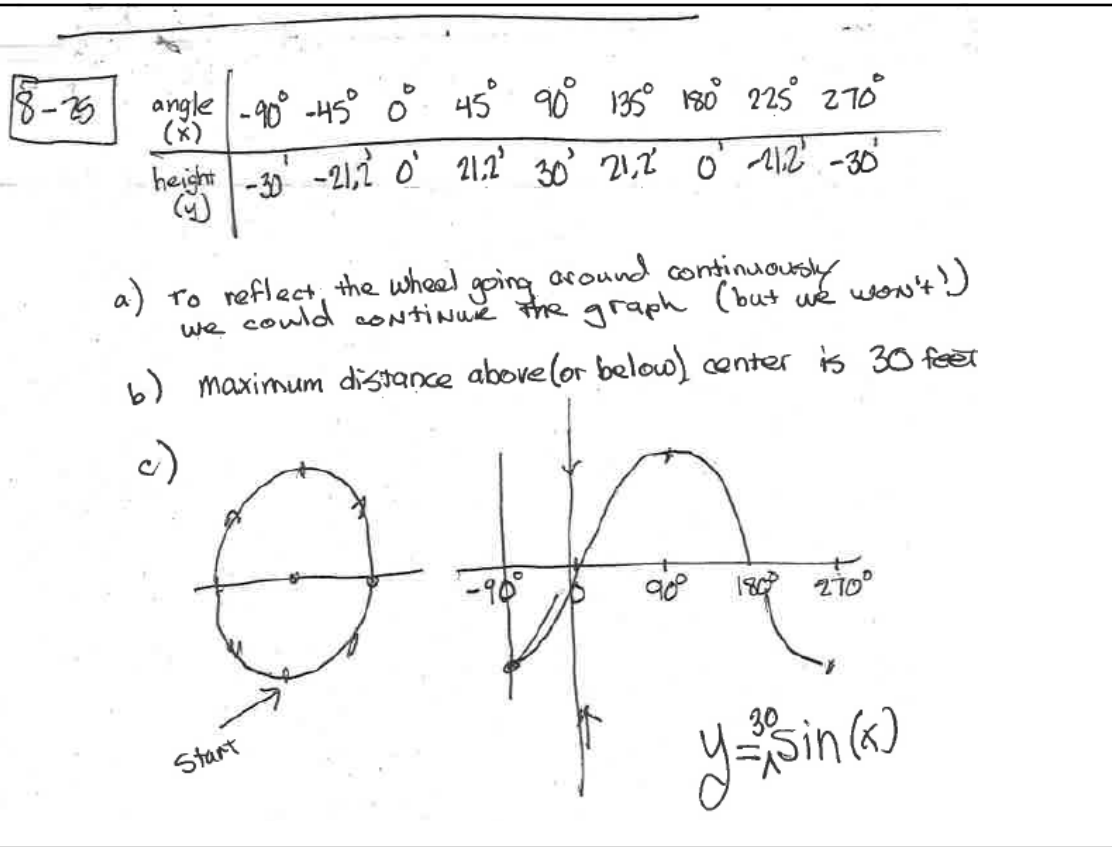 8-25
angle (x) -90° -45° 0° 45° 90° 135° 180° 225° 270°
height (y) -30' -21,2' 0' 21.2' 30' 21,2' 0' -21,2' -30'
a) To reflect, the wheel going around continuously
we could continue the graph (but we won't!)
b) Maximum distance above (or below) center is 30 feet
c)
-90° 0 90° 180° 270°
Start
y = 30 sin (x)